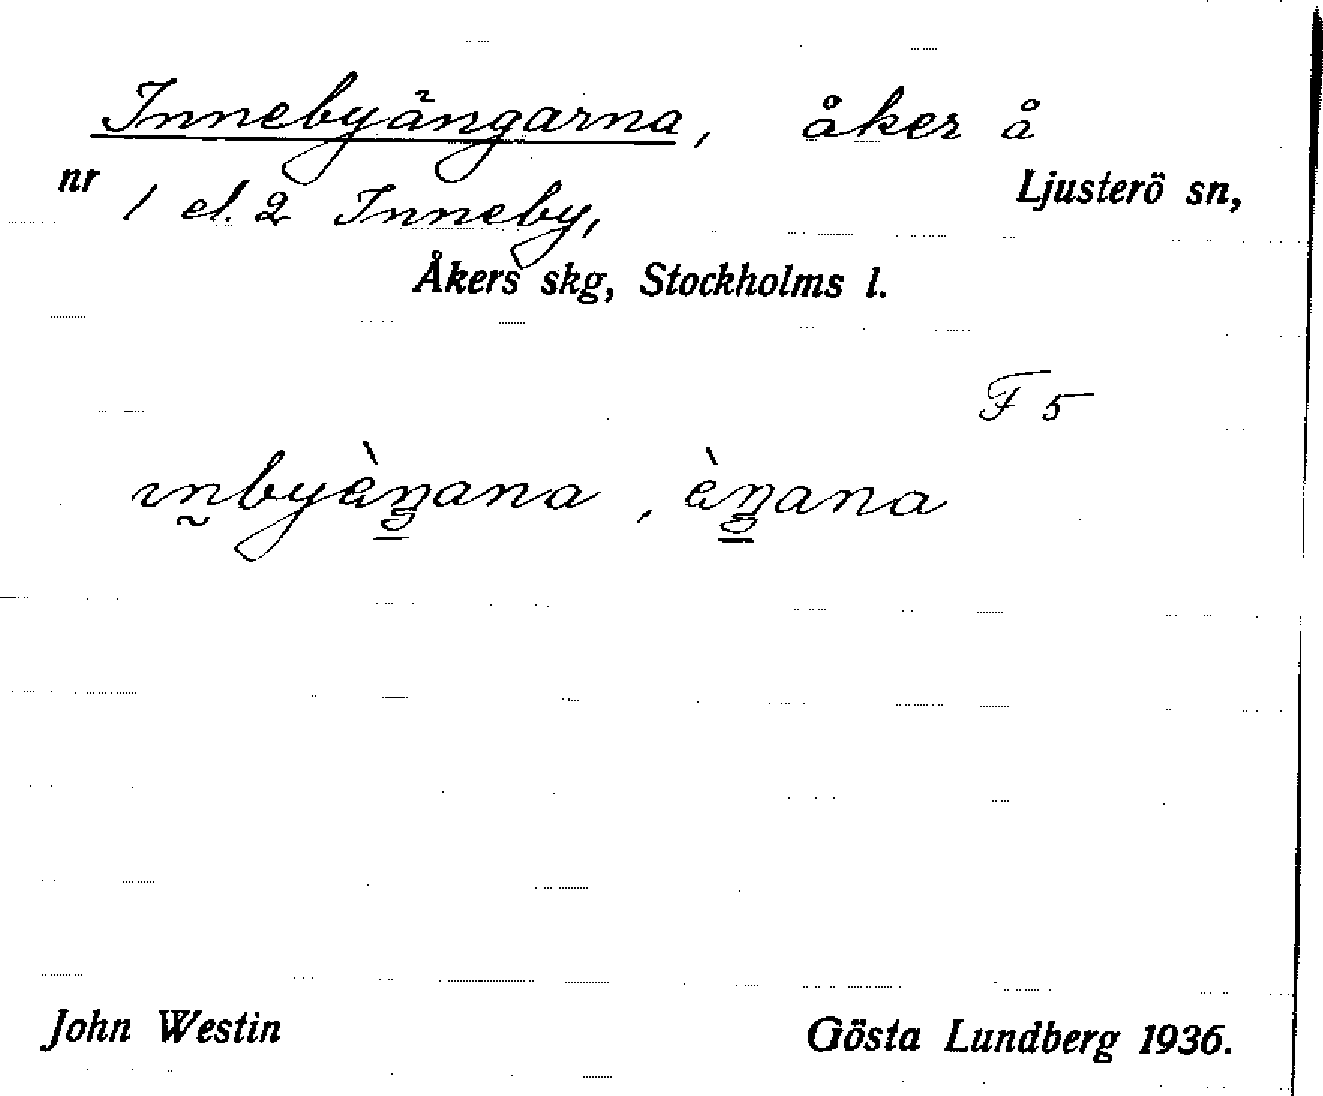 Innebyängarna, åker å
nr 1 el. 2 Inneby, Ljusterö sn,
Åkers skg, Stockholms l.
F 5
ın̰byὲŋ̲ana, ὲŋ̲ana
John Westin Gösta Lundberg 1936.